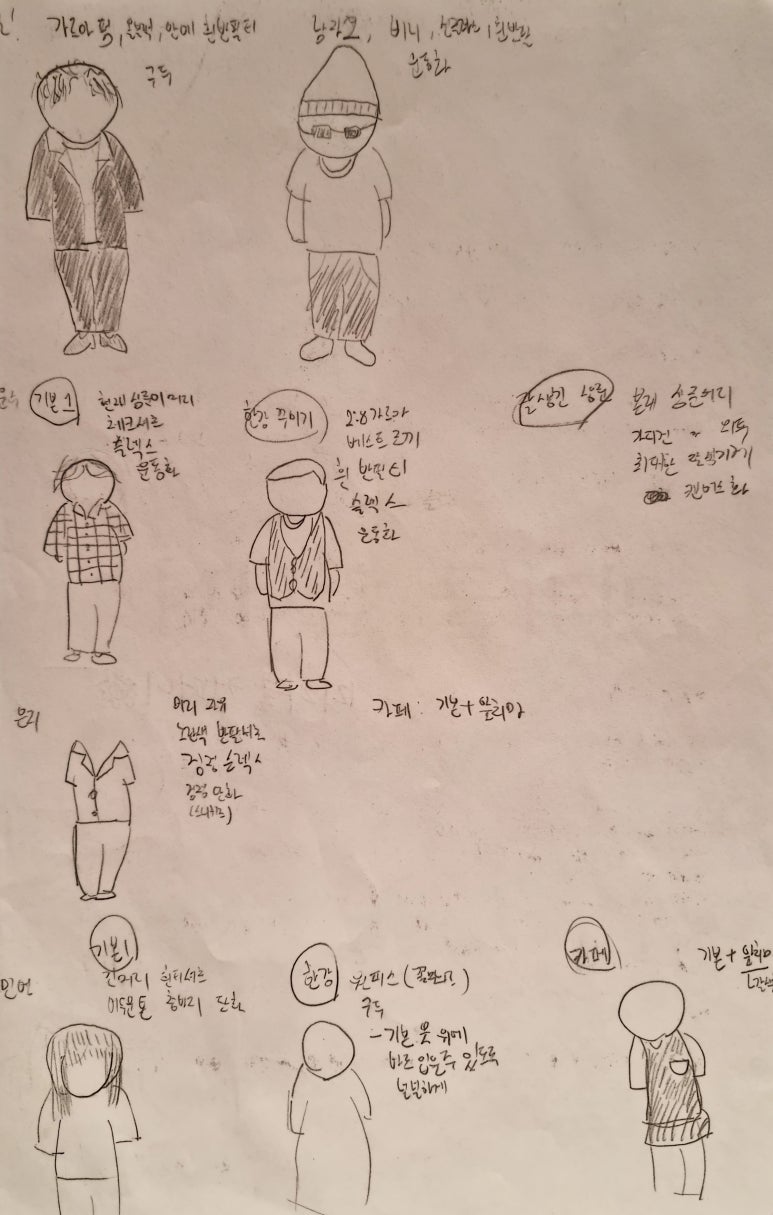 가르마 펌, 올블랙, 안에 흰반팔티
구두
비니, 선글라스, 흰반팔
운동화
기본 1
현재 심룡이 머리
체크셔츠
슬렉스
운동화
한강 꾸미기
2:8 가르마
베스트 조끼
흰 반팔티
슬렉스
운동화
잘생긴
본래
가디건
최대한 잘생기게
캔버스화
윤리
머리 고유
노란색 반팔셔츠
검정 슬렉스
검정 단화
(스니커즈)
카페 : 기본 + 앞치마
기본1
긴머리 흰티셔츠
어두운톤 청바지 단화
한강
원피스
구두
- 기본 옷 위에
바로 입을수 있도록
널널하게
카페
기본 + 앞치마